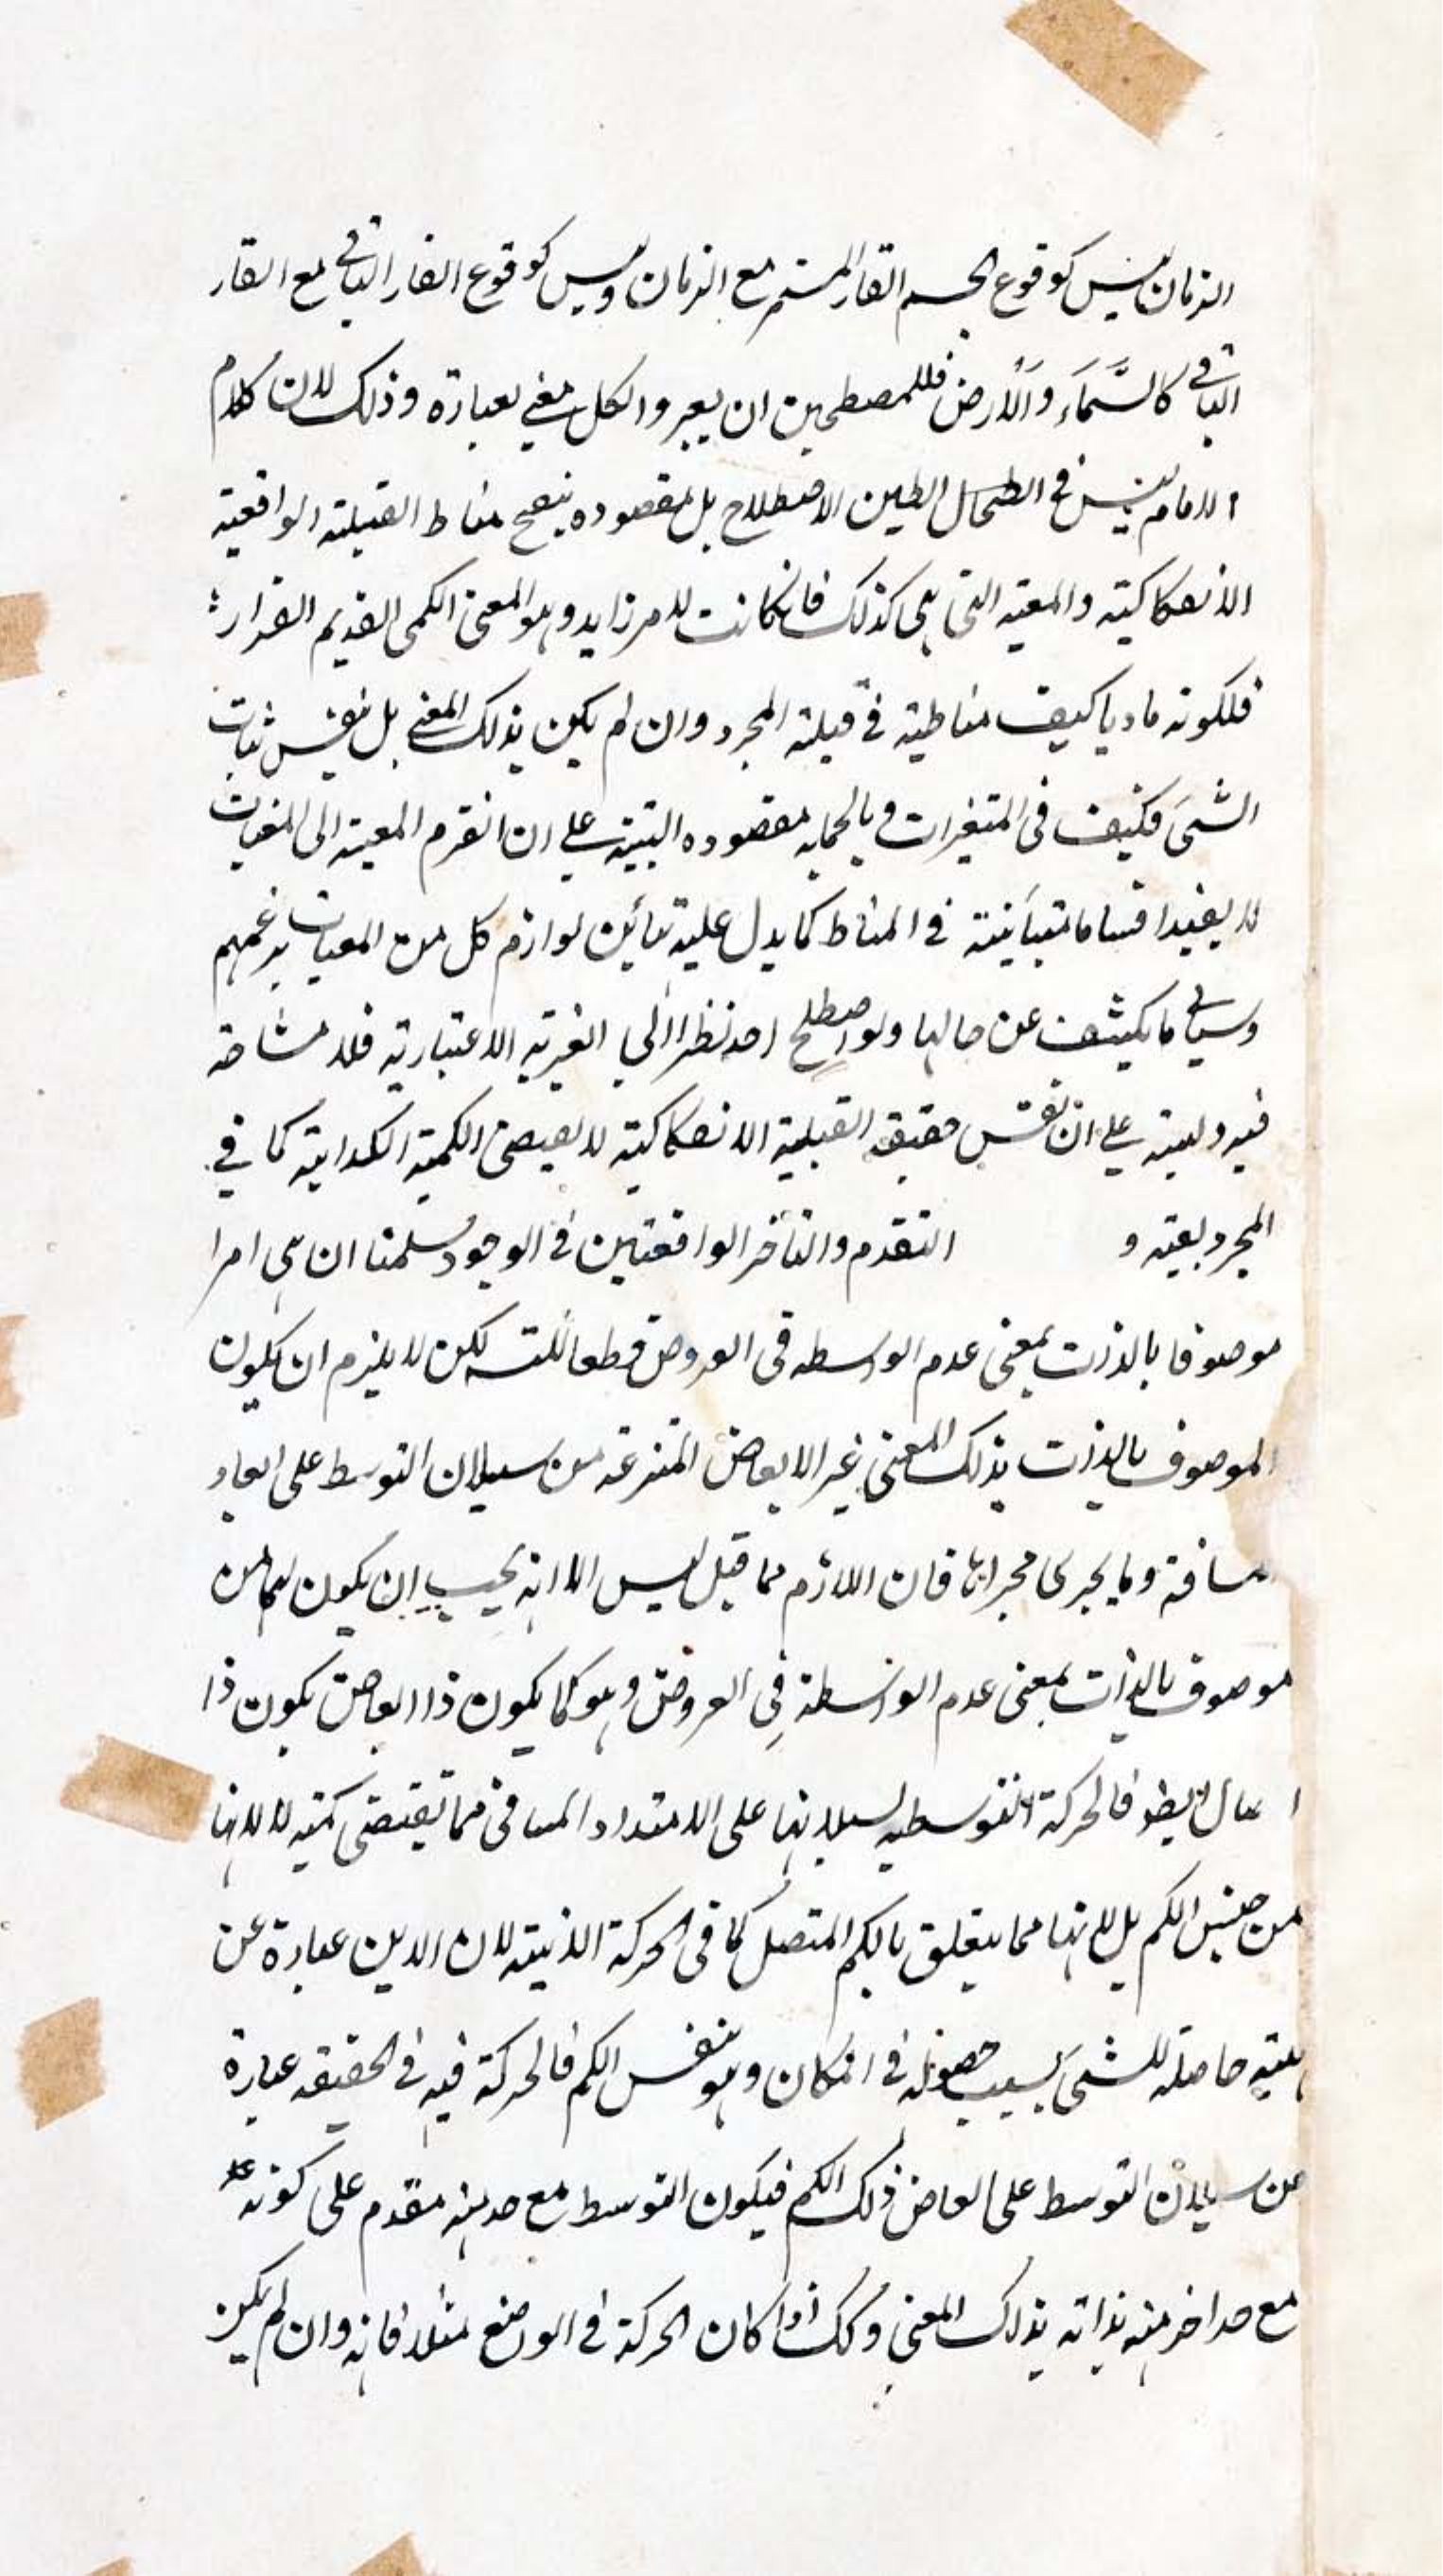 الزمان ليس كوقوع الجسم القار المستمر مع الزمان وليس كوقوع القار الباقي مع القار
الباقي كالسَّمَاَء والأرض فللمصطلحين ان يعبروا لكل معنى بعبارة وذلك لان كلام
الامام ليس في ابطال الاصطلاح بل مقصوده تنقيح مناط القبلية الواقعية
الانفكاكية والمعية التي هي كذلك فان كانت لامر زايد وهو المعنى الكمي القديم القرار
فلكونه ماديا كيف مناطية في قبلية المجرد وان لم يكن بذلك المعنى بل بنفس ثبات
الشئ فكيف في المتغيرات وبالجملة مقصوده التنبيه على ان المعية الى المعيات
لا يفيد اقساما متبأينة في المناط كما يدل عليه تبائن لوازم كل من المعيات بزعمهم
وسياتي ما يكشف عن حالها ولو اصطلح احد نظرا الى الغيرية الاعتبارية فلا مشاحة
فيه وليبتنه على ان نفس حقيقة القبلية الانفكاكية لا يقتضى الكمية الكذائية كما في
المجرد بقية و التقدم والتأخر الواقعتين في الوجود سلمنا ان هى امرا
موصوفا بالذات بمعنى عدم الواسطه في العروض قطعا للتسـ لكن لا يلزم ان يكون
الموصوف بالذات بذلك المعنى غير الابعاض المنتزعة من سيلان التوسط على ابعاد
مسافة وما يجرى مجراها فان اللازم مما قيل ليس الا انه يجب ان يكون لهما من
موصوف بالذات بمعنى عدم الواسطة في العروض وهو كما يكون ذا ابعاض يكون ذا
ايضا فالحركة التوسطيه لسيلانها على الامتداد المسافى مما تقتضى كمية لا لانها
من جنس الكم بل لانها مما يتعلق بالكم المتصل كما في الحركة الاينية لان الاين عبارة عن
هيئة حاصلة للشئ بسبب حصوله في المكان وهو نفس الكم فالحركة فيه في الحقيقة عبارة
من سيلان التوسط على ابعاض ذلك الكم فيكون التوسط مع حد منه مقدم على كونه
مع حد اخر منه بذاته بذلك المعنى وكك اذا كان الحركة في الوضع مثلا فانه وان لم يكن